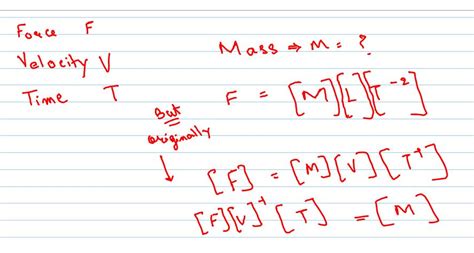 Force F
Velocity V
Time T
Mass ⇒ M = ?
F = [M][L][T⁻²]
But
originally
[F] = [M][V][T⁻¹]
[F][V]⁻¹[T] = [M]